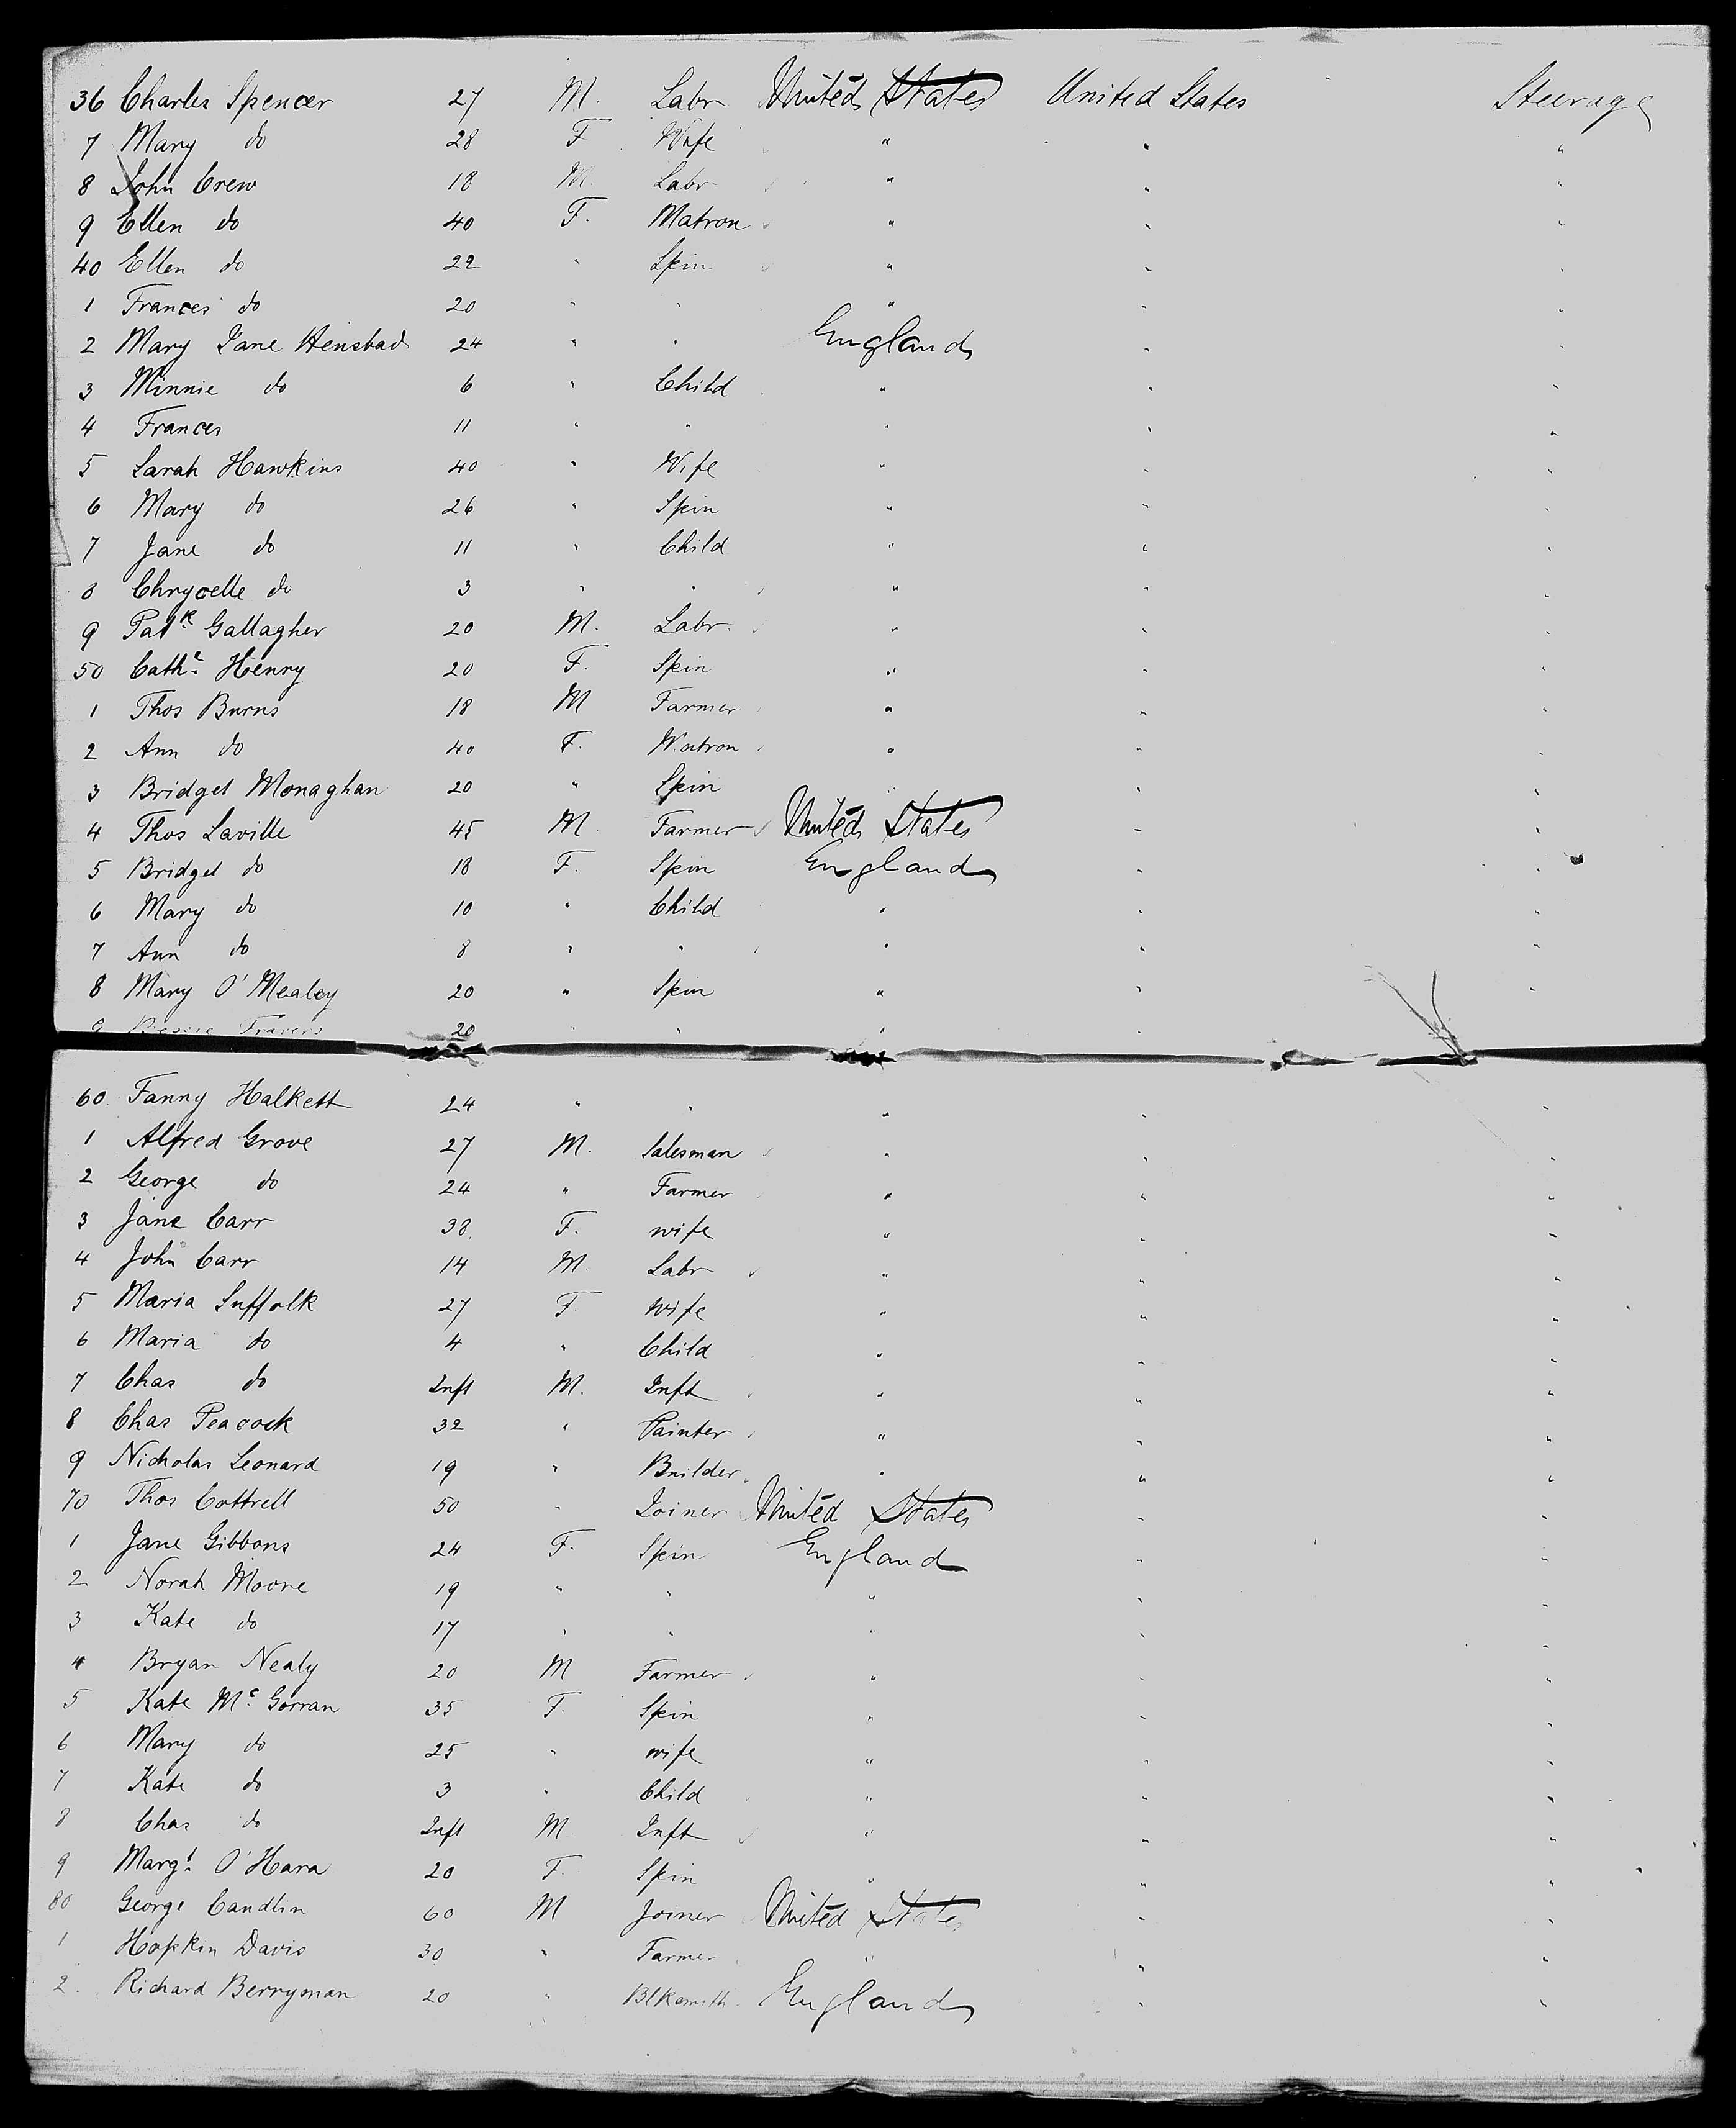 36 Charles Spencer 27 M. Labr United States United States Steerage
7 Mary do 28 F Wife " " "
8 John Crew 18 M. Labr " " "
9 Ellen do 40 F. Matron " " "
40 Ellen do 22 " Spin " " "
1 Frances do 20 " " " " "
2 Mary Jane 24 " " England " "
3 Minnie do 6 " Child " " "
4 Frances 11 " " " " "
5 Sarah Hawkins 40 " Wife " " "
6 Mary do 26 " Spin " " "
7 Jane do 11 " Child " " "
8 do 3 " " " " "
9 Patk Gallagher 20 M. Labr " " "
50 Cathe Henry 20 F. Spin " " "
1 Thos Burns 18 M Farmer " " "
2 Ann do 40 F. Matron " " "
3 Bridget Monaghan 20 " Spin " " "
4 Thos Laville 45 M Farmer United States " "
5 Bridget do 18 F. Spin England " "
6 Mary do 10 " Child " " "
7 Ann do 8 " " " " "
8 Mary O'Mealey 20 " Spin " " "
9 Bessie Travers 20 " " " "
60 Fanny Halkett 24 " " " " "
1 Alfred Grove 27 M. Salesman " " "
2 George do 24 " Farmer " " "
3 Jane Carr 38 F. wife " " "
4 John Carr 14 M. Labr " " "
5 Maria Suffolk 27 F. wife " " "
6 Maria do 4 " Child " " "
7 Chas do Inft M. Inft " " "
8 Chas Peacock 32 " Painter " " "
9 Nicholas Leonard 19 " Builder " " "
70 Thos Cottrell 50 " Joiner United States " "
1 Jane Gibbons 24 F. Spin England " "
2 Norah Moore 19 " " " " "
3 Kate do 17 " " " " "
4 Bryan Nealy 20 M Farmer " " "
5 Kate Mc Gorran 35 F. Spin " " "
6 Mary do 25 " wife " " "
7 Kate do 3 " Child " " "
8 Chas do Inft M Inft " " "
9 Margt O'Hara 20 F. Spin " " "
80 George Candlin 60 M Joiner United States " "
1 Hopkin Davis 30 " Farmer " " "
2. Richard Berryman 20 " Blksmith England " "